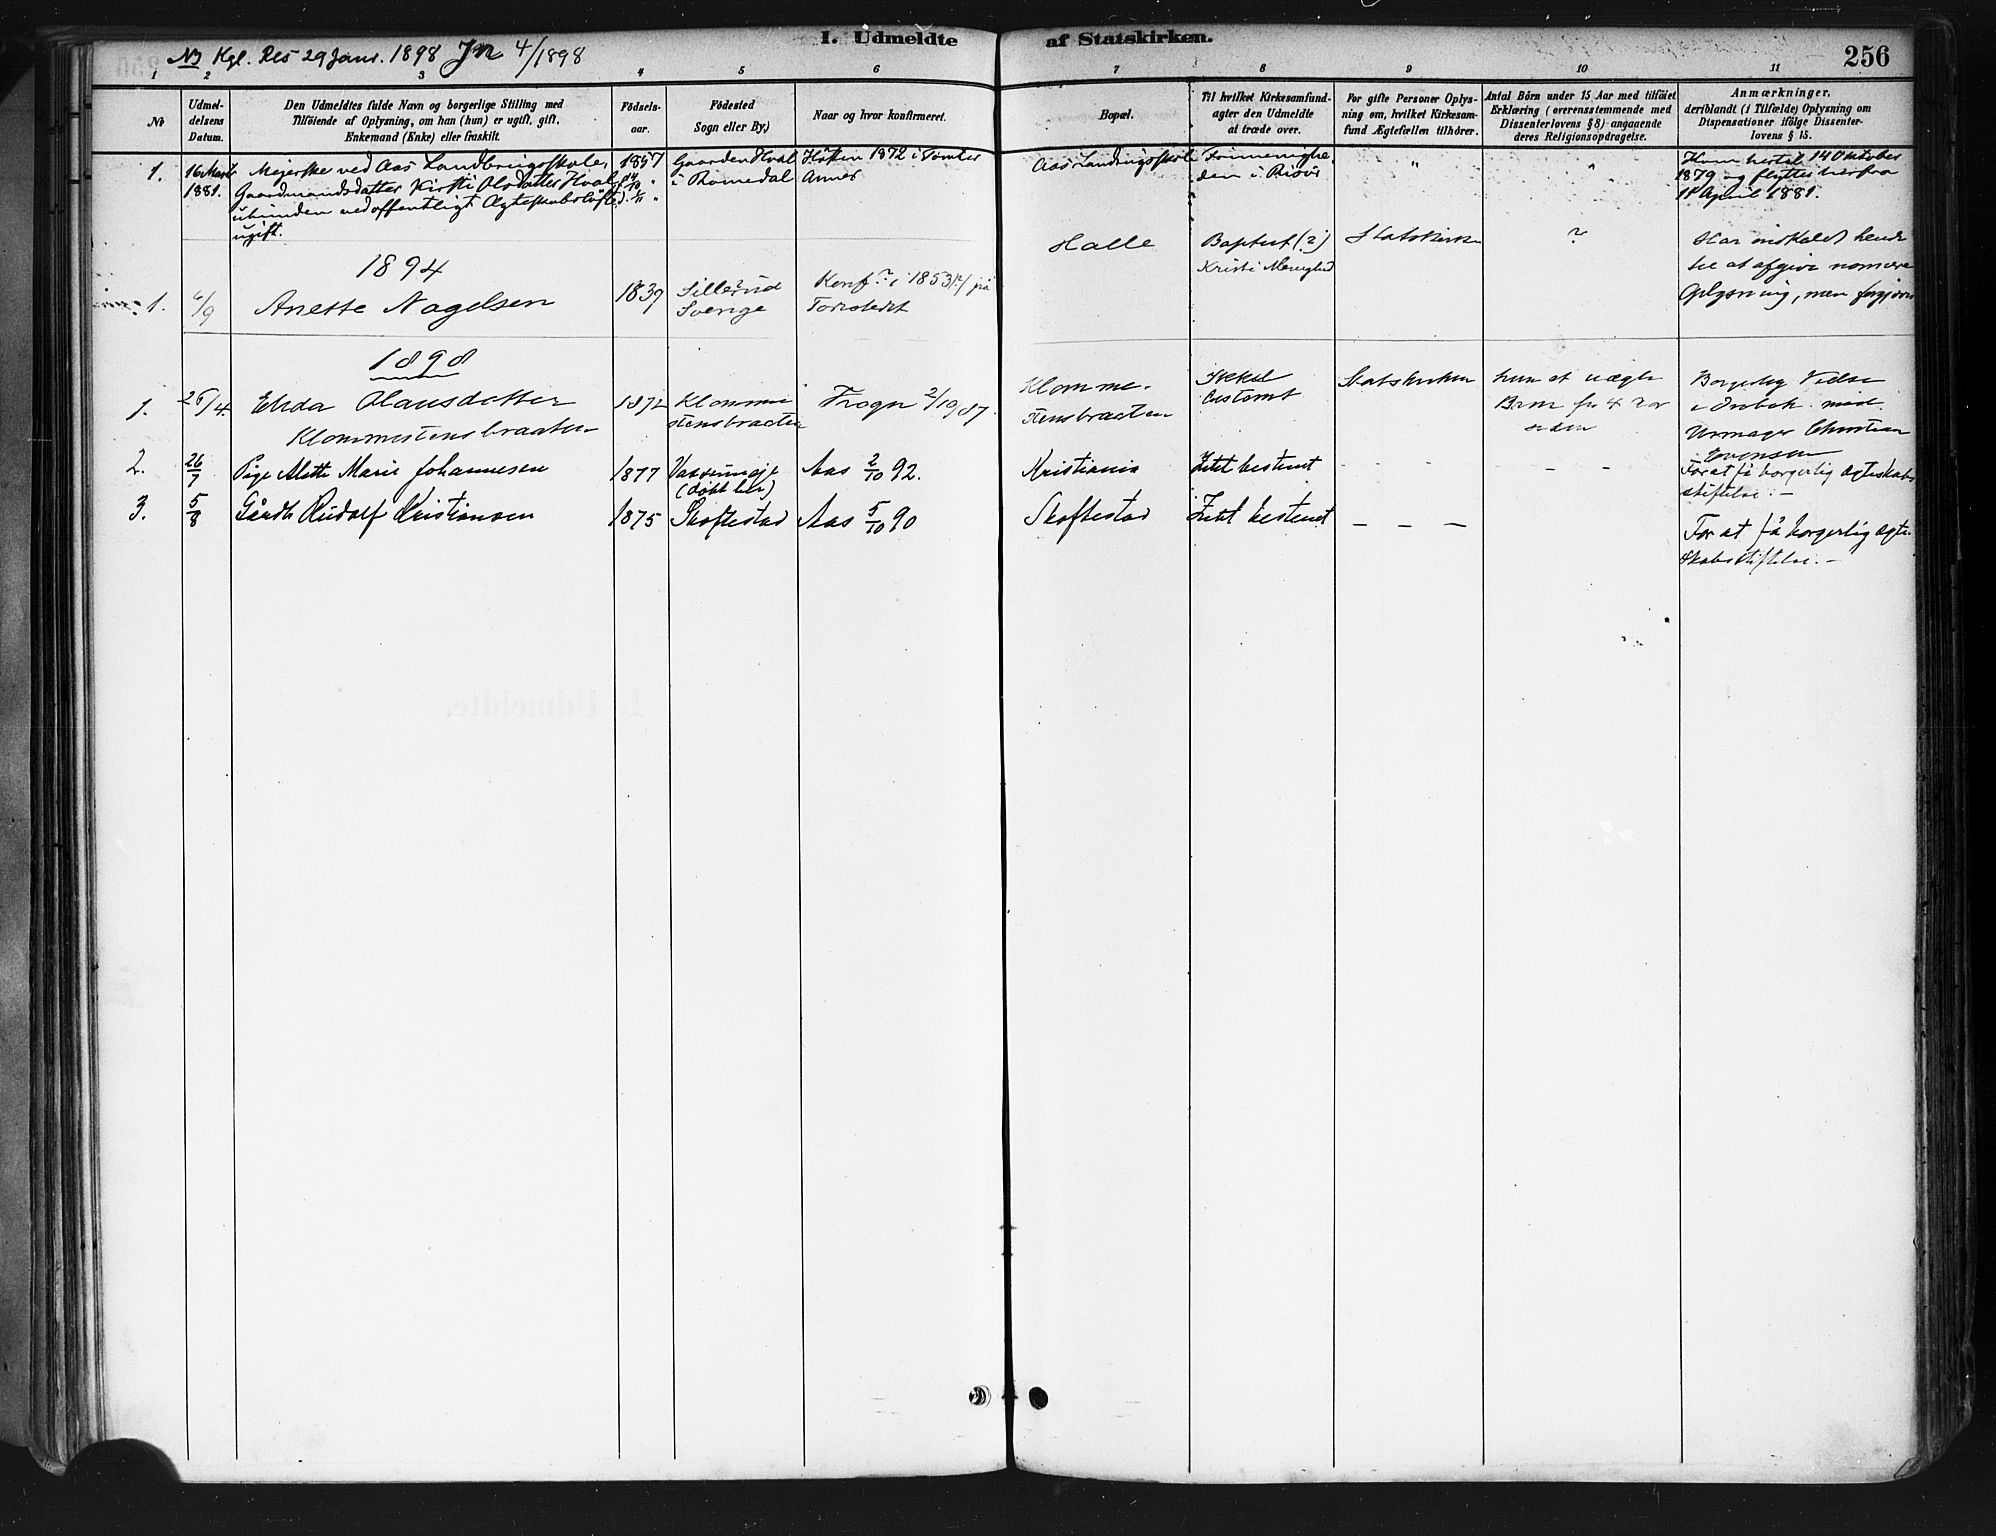 NB Kgl. Res 29 Janr. 1898 Jn 4/1898
I. Udmeldte af Statskirken.
256
1 2 3 4 5 6 7 8 9 10 11
No
Udmel-
delsens
Datum.
Den Udmeldtes fulde Navn og borgerlige Stilling med
Tilföiende af Oplysning, om han (hun) er ugift, gift,
Enkemand (Enke) eller fraskilt.
Födsels-
aar.
Födested
Sogn eller By.)
Naar og hvor konfirmeret.
Bopæl.
Til hvilket Kirkesamfund-
agter den Udmeldte
at træde over.
For gifte Personer Oplys-
ning om, hvilket Kirkesam-
fund Ægtefællen tilhörer.
Antal Börn under 15 Aar med tilföiet
Erklæring (overensstemmende med
Dissenterlovens § 8) angaaende
deres Religionsopdragelse.
Anmærkninger,
deriblandt (i Tilfælde) Oplysning om
Dispensationer ifölge Dissenter-
lovens § 15.
1.
16 Marts
1881.
Mejerske ved Aas Landbrugsskole,
Gaardmandsdatter Kirsti Olsdatter Hval
ubunden ved offentligt Ægteskabsløfte
ugift.
1857
Gaarden Hval
i Romedal
1872 i Tomter
Annex
Aas Landbrugsskole
Frimenighe-
den i Risör
"
"
Kom hertil 14 Oktober
1879 og flytter herfra
14 April 1881.
1894
1.
6/9
Anette Nagelsen
1839
Sillerud
Sverige
Konf? i 1853(?) på
Halle
Baptist (?)
Kristi Menighed
Statskirken
?
Har indkaldt hende
til at afgive nærmere
Oplysning, men forgjæves
1898
1.
26/4
Olausdatter
Klommestensbraaten
1872
Klomme
stensbraaten
Frogn 2/10 87.
Klomme-
stensbraaten
Ikke
bestemt
Statskirken
Borgerlig Vielse
i Drøbak med
Urmager Christian
Evensen
2.
26/7
Pige Alette Marie Johannesen
1877
(døbt her)
Aas 2/10 92.
Kristiania
Ikke bestemt
- - -
- -
For at få borgerlig Ægteskabs
stiftelse. -
3.
5/8
Gårdb. Rudolf Kristiansen
1875
Skoftestad
Aas 5/10 90
Skoftestad
Ikke bestemt
- - -
For at få borgerlig Ægte-
skabsstiftelse. -